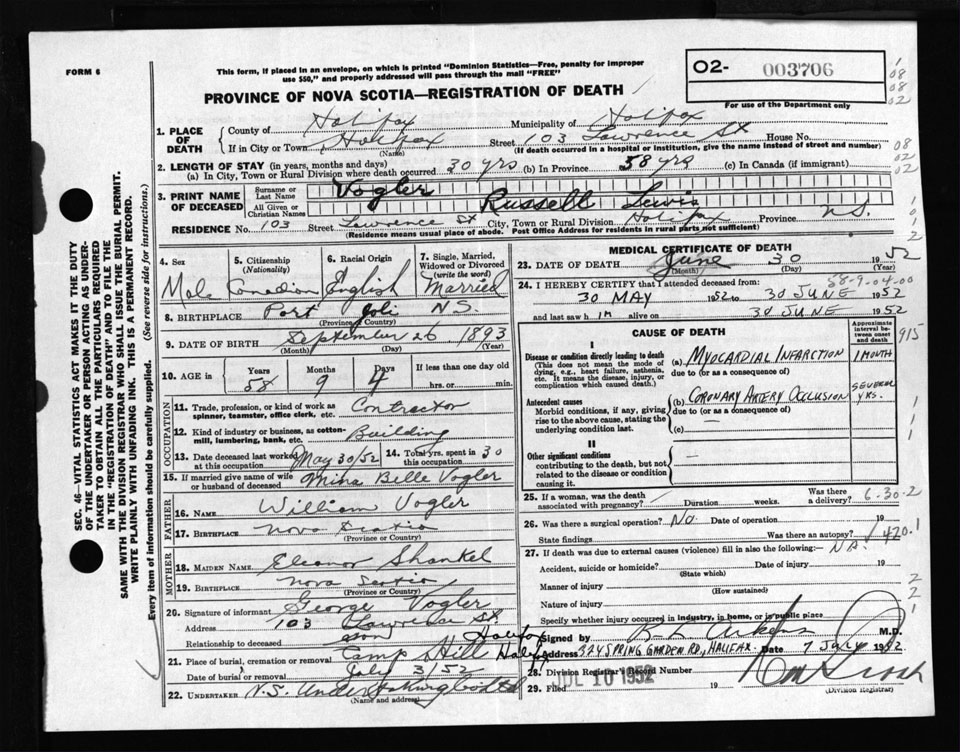 FORM 6
This form, if placed in an envelope, on which is printed "Dominion Statistics—Free, penalty for improper
use $50," and properly addressed will pass through the mail "FREE"
PROVINCE OF NOVA SCOTIA—REGISTRATION OF DEATH
02- 003706
For use of the Department only
1. PLACE OF DEATH
County of Halifax Municipality of Halifax
If in City or Town Halifax Street 103 Lawrence St House No.
(Name) (If death occurred in a hospital or institution, give the name instead of street and number)
2. LENGTH OF STAY (in years, months and days)
(a) In City, Town or Rural Division where death occurred 30 yrs (b) In Province 58 yrs (c) In Canada (if immigrant)
3. PRINT NAME OF DECEASED
Surname or Last Name Vogler
All Given or Christian Names Russell Lewis
RESIDENCE No. 103 Street Lawrence St City, Town or Rural Division Halifax Province N.S.
(Residence means usual place of abode. Post Office Address for residents in rural parts not sufficient)
4. Sex 5. Citizenship (Nationality) 6. Racial Origin 7. Single, Married, Widowed or Divorced (write the word)
Male Canadian English Married
8. BIRTHPLACE Port Joli N.S.
(Province or Country)
9. DATE OF BIRTH September 26 1893
(Month) (Day) (Year)
10. AGE in Years Months Days If less than one day old
58 9 4 hrs. or min.
OCCUPATION
11. Trade, profession, or kind of work as spinner, teamster, office clerk, etc. Contractor
12. Kind of industry or business, as cotton-mill, lumbering, bank, etc. Building
13. Date deceased last worked at this occupation May 30/52 14. Total yrs. spent in this occupation 30
15. If married give name of wife or husband of deceased Mina Belle Vogler
FATHER
16. NAME William Vogler
17. BIRTHPLACE Nova Scotia
(Province or Country)
MOTHER
18. MAIDEN NAME Eleanor Shankel
19. BIRTHPLACE Nova Scotia
(Province or Country)
20. Signature of informant George Vogler
Address 103 Lawrence St Halifax
Relationship to deceased son
21. Place of burial, cremation or removal Camp Hill Halifax
Date of burial or removal July 3/52
22. UNDERTAKER N.S. Undertaking Co Ltd
(Name and address)
MEDICAL CERTIFICATE OF DEATH
23. DATE OF DEATH June 30 1952
(Month) (Day) (Year)
58-9-04-00
24. I HEREBY CERTIFY that I attended deceased from:
30 MAY 1952 to 30 JUNE 1952
and last saw him alive on 30 JUNE 1952
CAUSE OF DEATH
Approximate interval between onset and death
915
I
Disease or condition directly leading to death
(This does not mean the mode of dying, e.g., heart failure, asthenia, etc. It means the disease, injury, or complication which caused death.)
(a) MYOCARDIAL INFARCTION 1 MONTH
due to (or as a consequence of)
Antecedent causes
Morbid conditions, if any, giving rise to the above cause, stating the underlying condition last.
(b) CORONARY ARTERY OCCLUSION SEVERAL YRS.
due to (or as a consequence of)
(c)
II
Other significant conditions
contributing to the death, but not related to the disease or condition causing it.
25. If a woman, was the death associated with pregnancy? Duration weeks. Was there a delivery?
6.30.2
26. Was there a surgical operation? No. Date of operation 19
State findings Was there an autopsy?
420.1
27. If death was due to external causes (violence) fill in also the following:— NA.
Accident, suicide or homicide? Date of injury 19
(State which)
Manner of injury
(How sustained)
Nature of injury
Specify whether injury occurred in industry, in home, or in public place
Signed by M.D.
Address 324 SPRING GARDEN RD, HALIFAX. Date 7 July 1952.
28. Division Registrar's Record Number
29. Filed JUL 10 1952 19
(Division Registrar)
SEC. 46—VITAL STATISTICS ACT MAKES IT THE DUTY
OF THE UNDERTAKER OR PERSON ACTING AS UNDER-
TAKER TO OBTAIN ALL THE PARTICULARS REQUIRED
IN THE "REGISTRATION OF DEATH" AND TO FILE THE
SAME WITH THE DIVISION REGISTRAR WHO SHALL ISSUE THE BURIAL PERMIT.
WRITE PLAINLY WITH UNFADING INK. THIS IS A PERMANENT RECORD.
Every item of information should be carefully supplied. (See reverse side for instructions.)